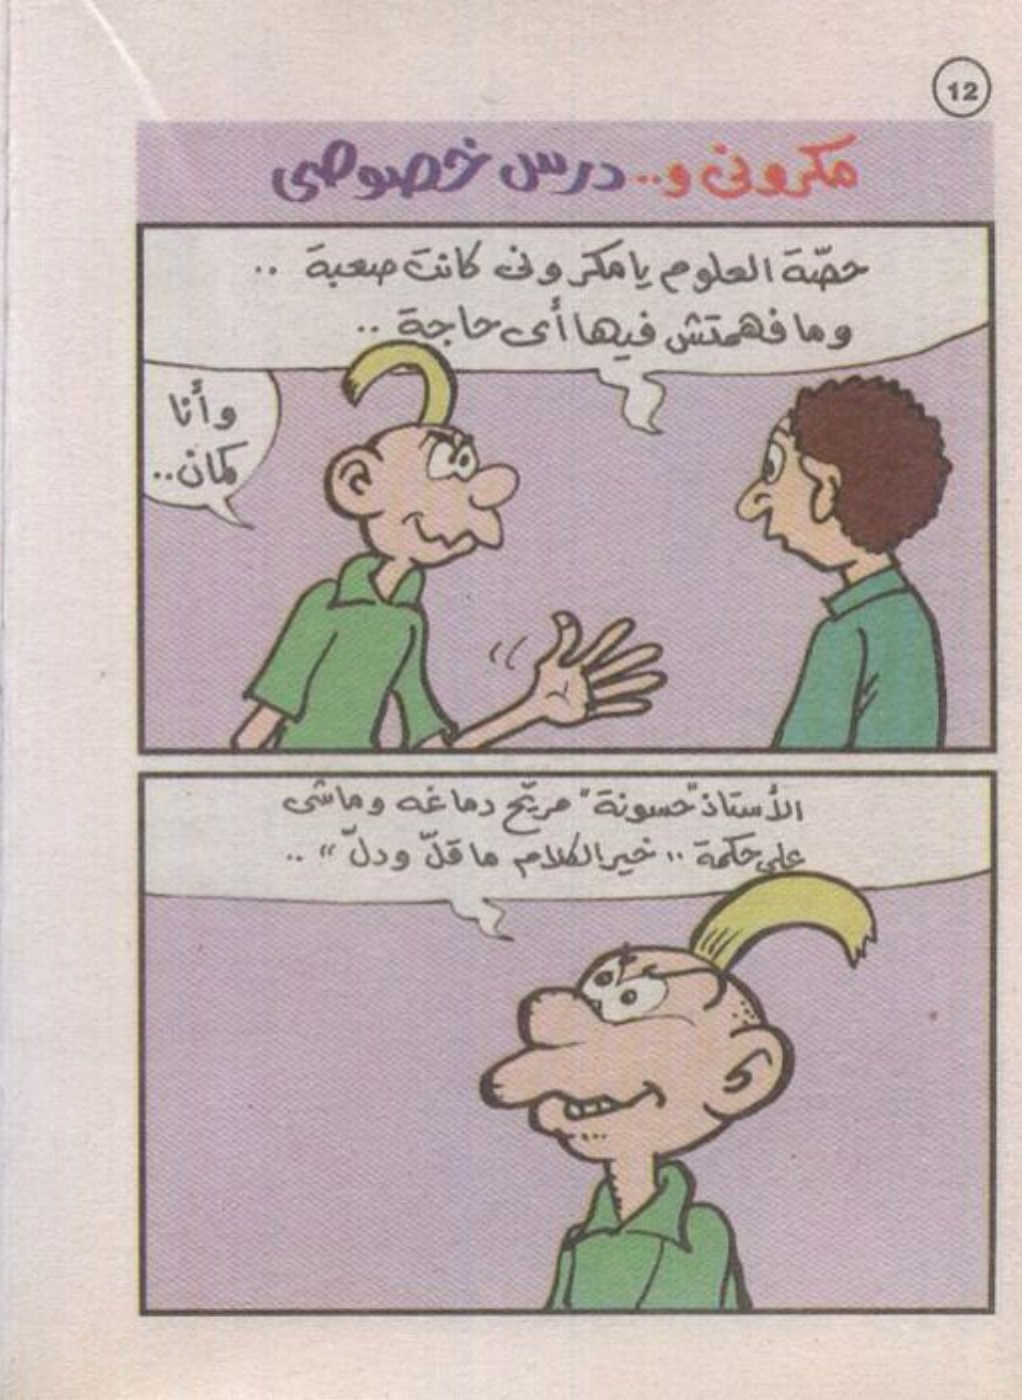 12
مكرونى و.. درس خصوصى
حصّة العلوم يا مكرونى كانت صعبة ..
وما فهمتش فيها أى حاجة ..
وأنا
كمان..
الأستاذ "حسونة" مريّح دماغه وماشى
على حكمة ,, خير الكلام ما قلّ ودلّ ,, ..